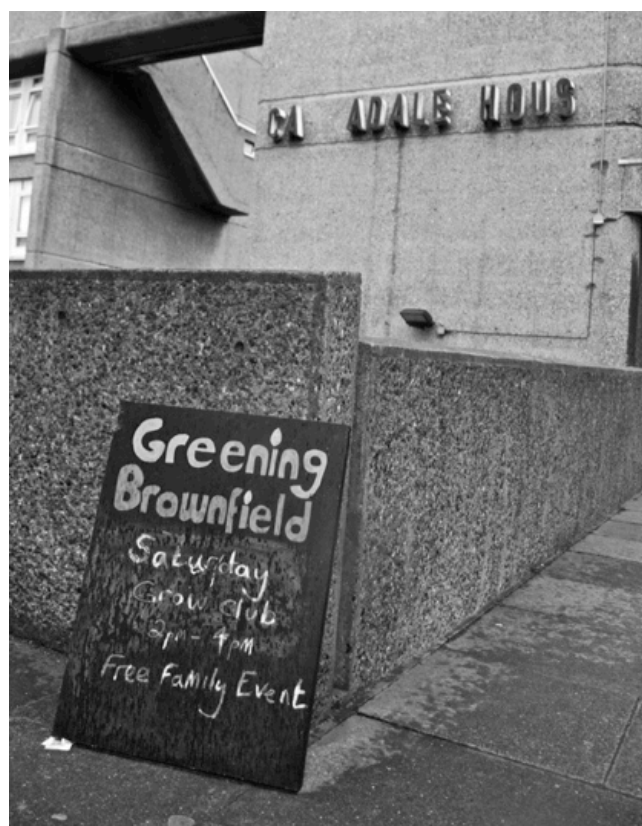 CA ADALE HOUS
Greening
Brownfield
Saturday
Grow club
2pm - 4pm
Free Family Event